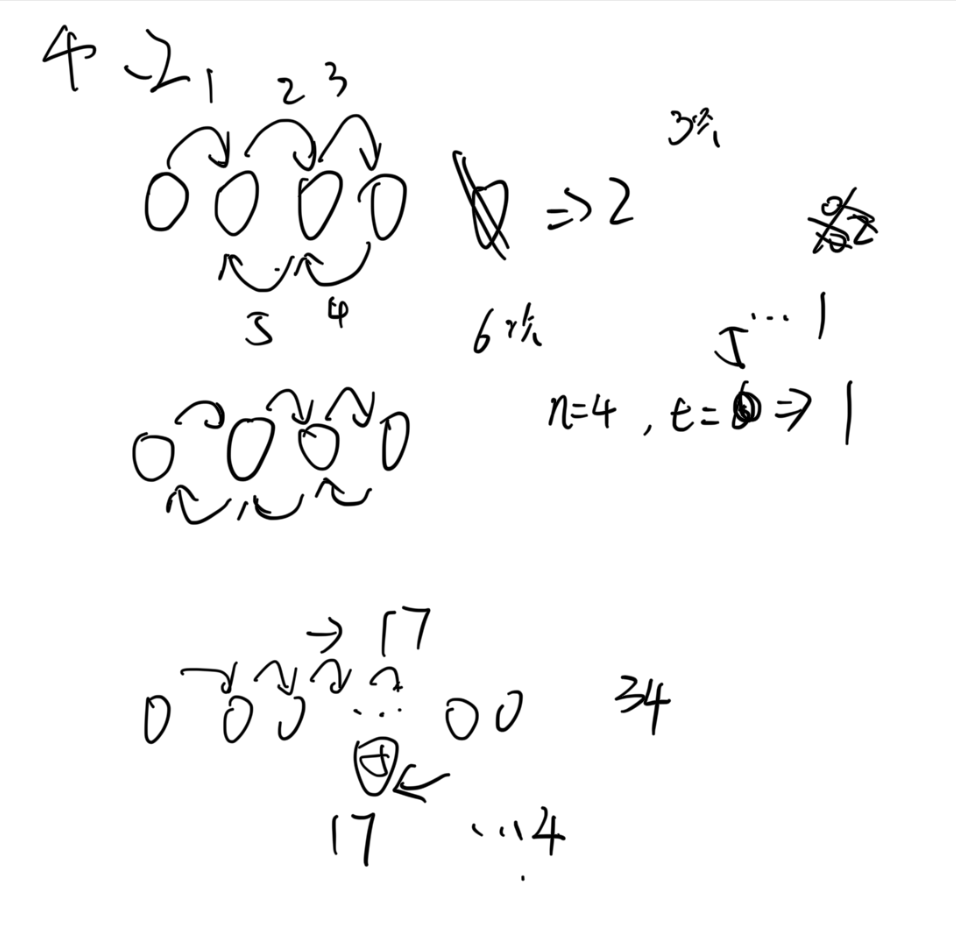 4 -2
1 2 3
3次
0 0 0 0 => 2
5 4
6次
5 ... 1
n=4, t= => 1
0 0 0 0
→ 17
0 0 0 ... 0 0 34
17 ...4